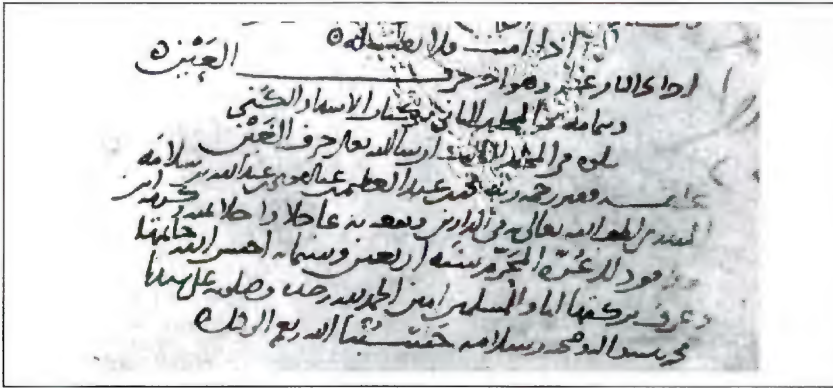 اذا امنت فلا
وهو اخر حرف العين
وبتمامه تم المجلد الثاني من كتاب الاسماء والكنى
يتلوه في المجلد الثالث ان شا الله تعالى حرف الغين
فقير رحمة ربه محمد بن عبد العظيم بن عبد القوي بن عبد الله بن سلامه
المنذري لطف الله تعالى به في الدارين ونفعه به عاجلا واجلا بمنه وكرمه امين
غرة المحرم سنه اربعين وستمايه احسن الله خاتمتها
وعرف بركتها ايانا والمسلمين امين الحمد لله وحده وصلواته على سيدنا
محمد واله وصحبه وسلامه حسبنا الله ونعم الوكيل